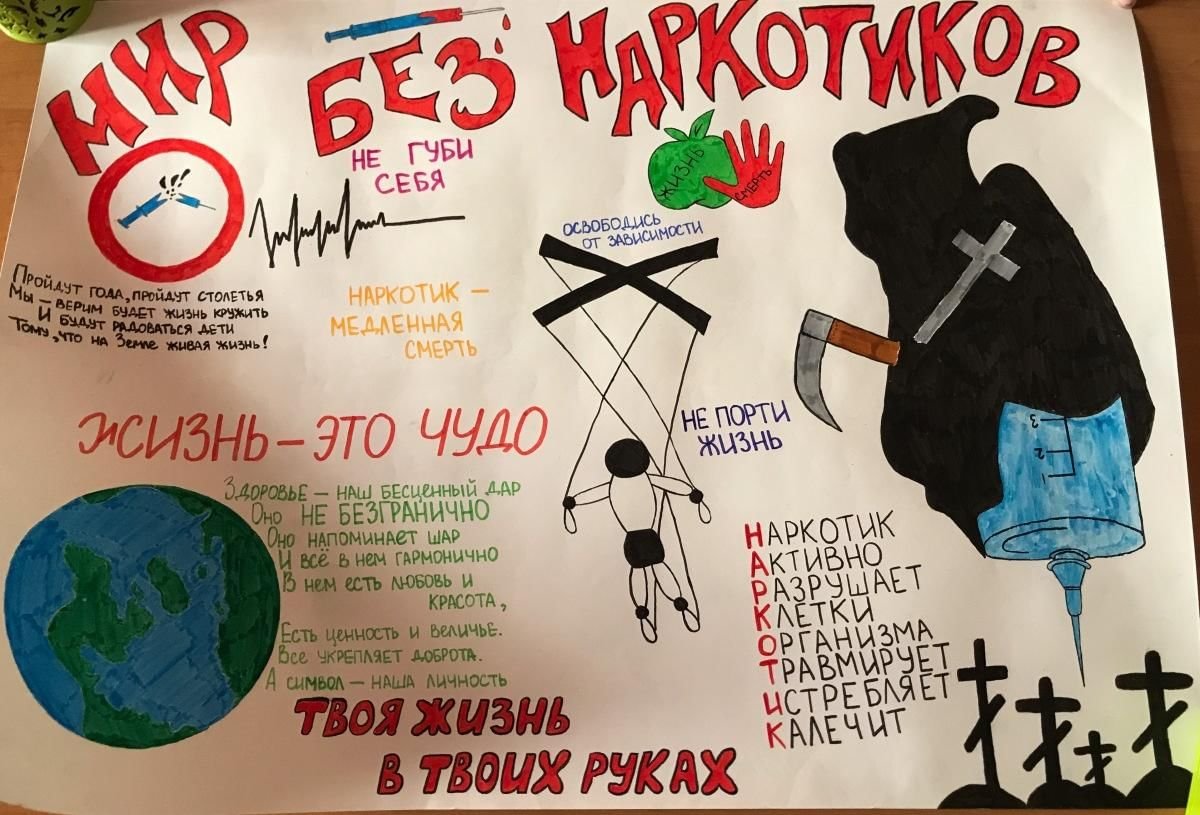 МИР БЕЗ НАРКОТИКОВ
НЕ ГУБИ
СЕБЯ
ЖИЗНЬ
СМЕРТЬ
ОСВОБОДИСЬ
ОТ ЗАВИСИМОСТИ
ПРОЙДУТ ГОДА, ПРОЙДУТ СТОЛЕТЬЯ
МЫ – ВЕРИМ БУДЕТ ЖИЗНЬ КРУЖИТЬ
И БУДУТ РАДОВАТЬСЯ ДЕТИ
ТОМУ, ЧТО НА ЗЕМЛЕ ЖИВАЯ ЖИЗНЬ!
НАРКОТИК –
МЕДЛЕННАЯ
СМЕРТЬ
НЕ ПОРТИ
ЖИЗНЬ
ЖИЗНЬ – ЭТО ЧУДО
ЗДОРОВЬЕ – НАШ БЕСЦЕННЫЙ ДАР
ОНО НЕ БЕЗГРАНИЧНО
ОНО НАПОМИНАЕТ ШАР
И ВСЁ В НЕМ ГАРМОНИЧНО
В НЕМ ЕСТЬ ЛЮБОВЬ И
КРАСОТА,
ЕСТЬ ЦЕННОСТЬ И ВЕЛИЧЬЕ.
ВСЕ УКРЕПЛЯЕТ ДОБРОТА.
А СИМВОЛ – НАША ЛИЧНОСТЬ
НАРКОТИК
АКТИВНО
РАЗРУШАЕТ
КЛЕТКИ
ОРГАНИЗМА
ТРАВМИРУЕТ
ИСТРЕБЛЯЕТ
КАЛЕЧИТ
3
2
1
ТВОЯ ЖИЗНЬ
В ТВОИХ РУКАХ